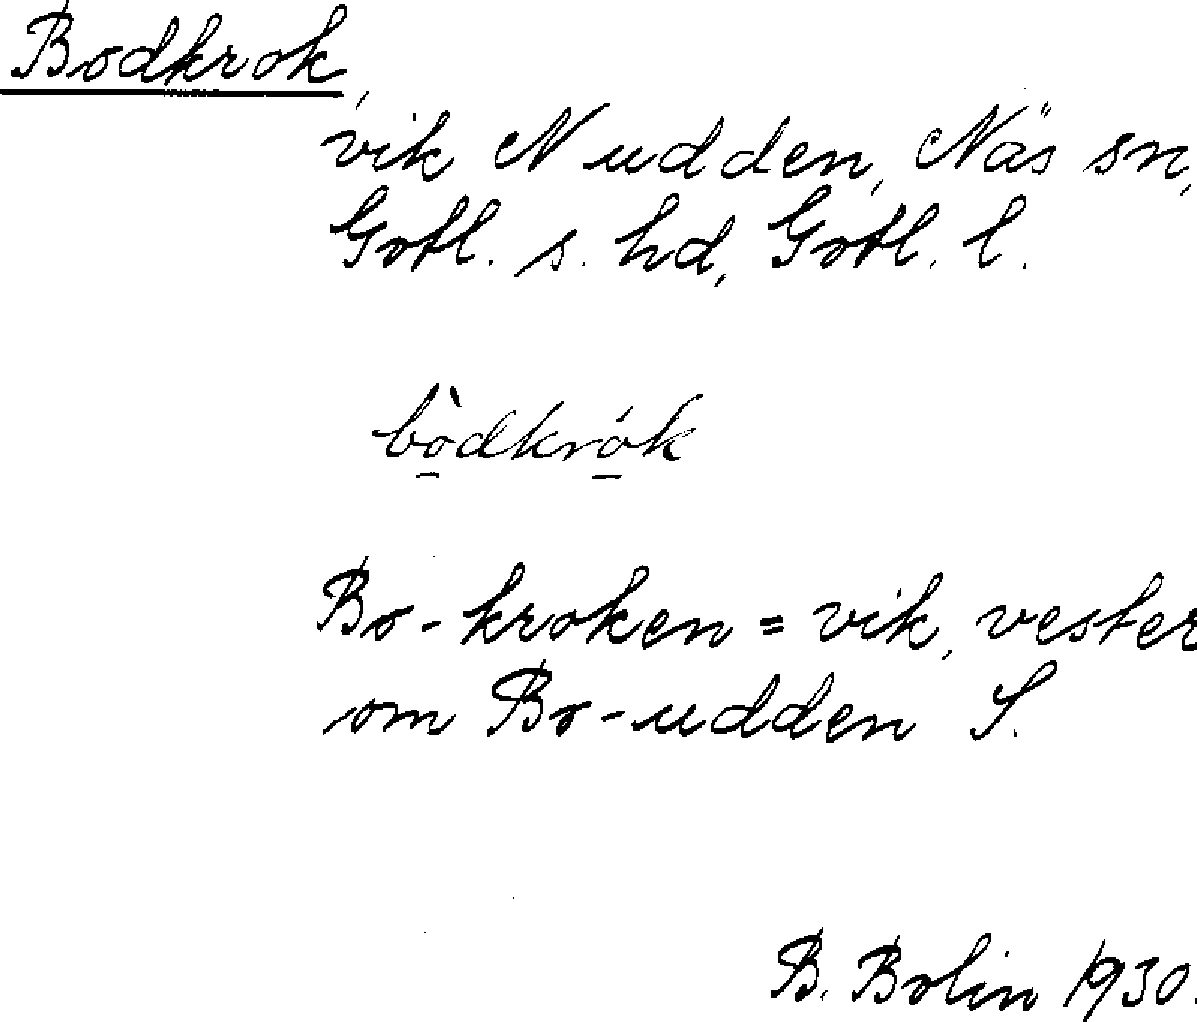 Bodkrok,
vik N udden, Näs sn,
Gotl. s. hd, Gotl. l.
bò̠dkró̠k
Bo-kroken = vik, vester
om Bo-udden S.
B. Bolin 1930.